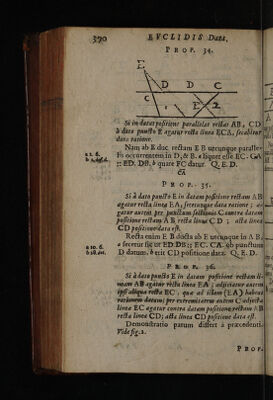 390 EVCLIDIS Data.
PROP. 34.
E
D D C
C
1 E 2
Si in datas positione parallelas rectas AB, CD
à dato puncto E agatur recta linea ECA, secabitur
data ratione.
Nam ab E duc rectam EB utcunque paralle-
lis occurrentem in D, & B. a liquet esse EC. CA
:: ED. DB. b quare FC datur. Q. E. D.
CA
PROP. 35.
Si à dato puncto E in datam positione rectam AB
agatur recta linea EA, seceturque data ratione; a-
gatur autem per punctum sectionis C contra datam
positione rectam AB recta linea CD; acta linea
CD positione data est.
Recta enim EB ducta ab E utcunque in AB.
a secetur sic ut ED.DB :: EC. CA. ob punctum
D datum. b erit CD positione data. Q. E. D.
a 10. 6.
b 28. dat.
PROP. 36.
Si à dato puncto E in datam positione rectam li-
neam AB agatur recta linea EA; adjiciatur autem
ipsi aliqua recta EC, quæ ad illam (EA) habeat
rationem datam; per extremitatem autem C adjectæ
lineæ EC agatur contra datam positione rectam AB
recta linea CD; acta linea CD positione data est.
Demonstratio parum differt à præcedenti.
Vide fig. 2.
PROP.